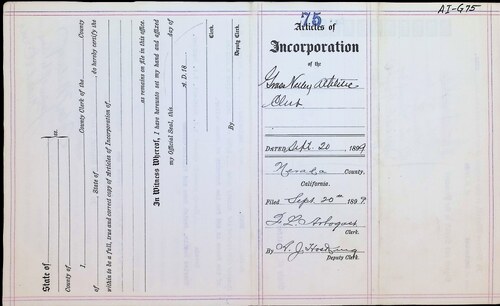 AI-G75
75
Articles of
Incorporation
of the
Grass Valley Athletic
Club
DATED Sept. 20 1899
Nevada County,
California.
Filed Sept. 20th 1899.
F. L. Arbogast
Clerk.
By A. J. Hosking
Deputy Clerk.
State of
ss.
County of
I, County Clerk of the County
of State of do hereby certify the
within to be a full, true and correct copy of Articles of Incorporation of
as remains on file in this office.
In Witness Whereof, I have hereunto set my hand and affixed
my Official Seal, this day of
A. D. 18
Clerk.
By
Deputy Clerk.